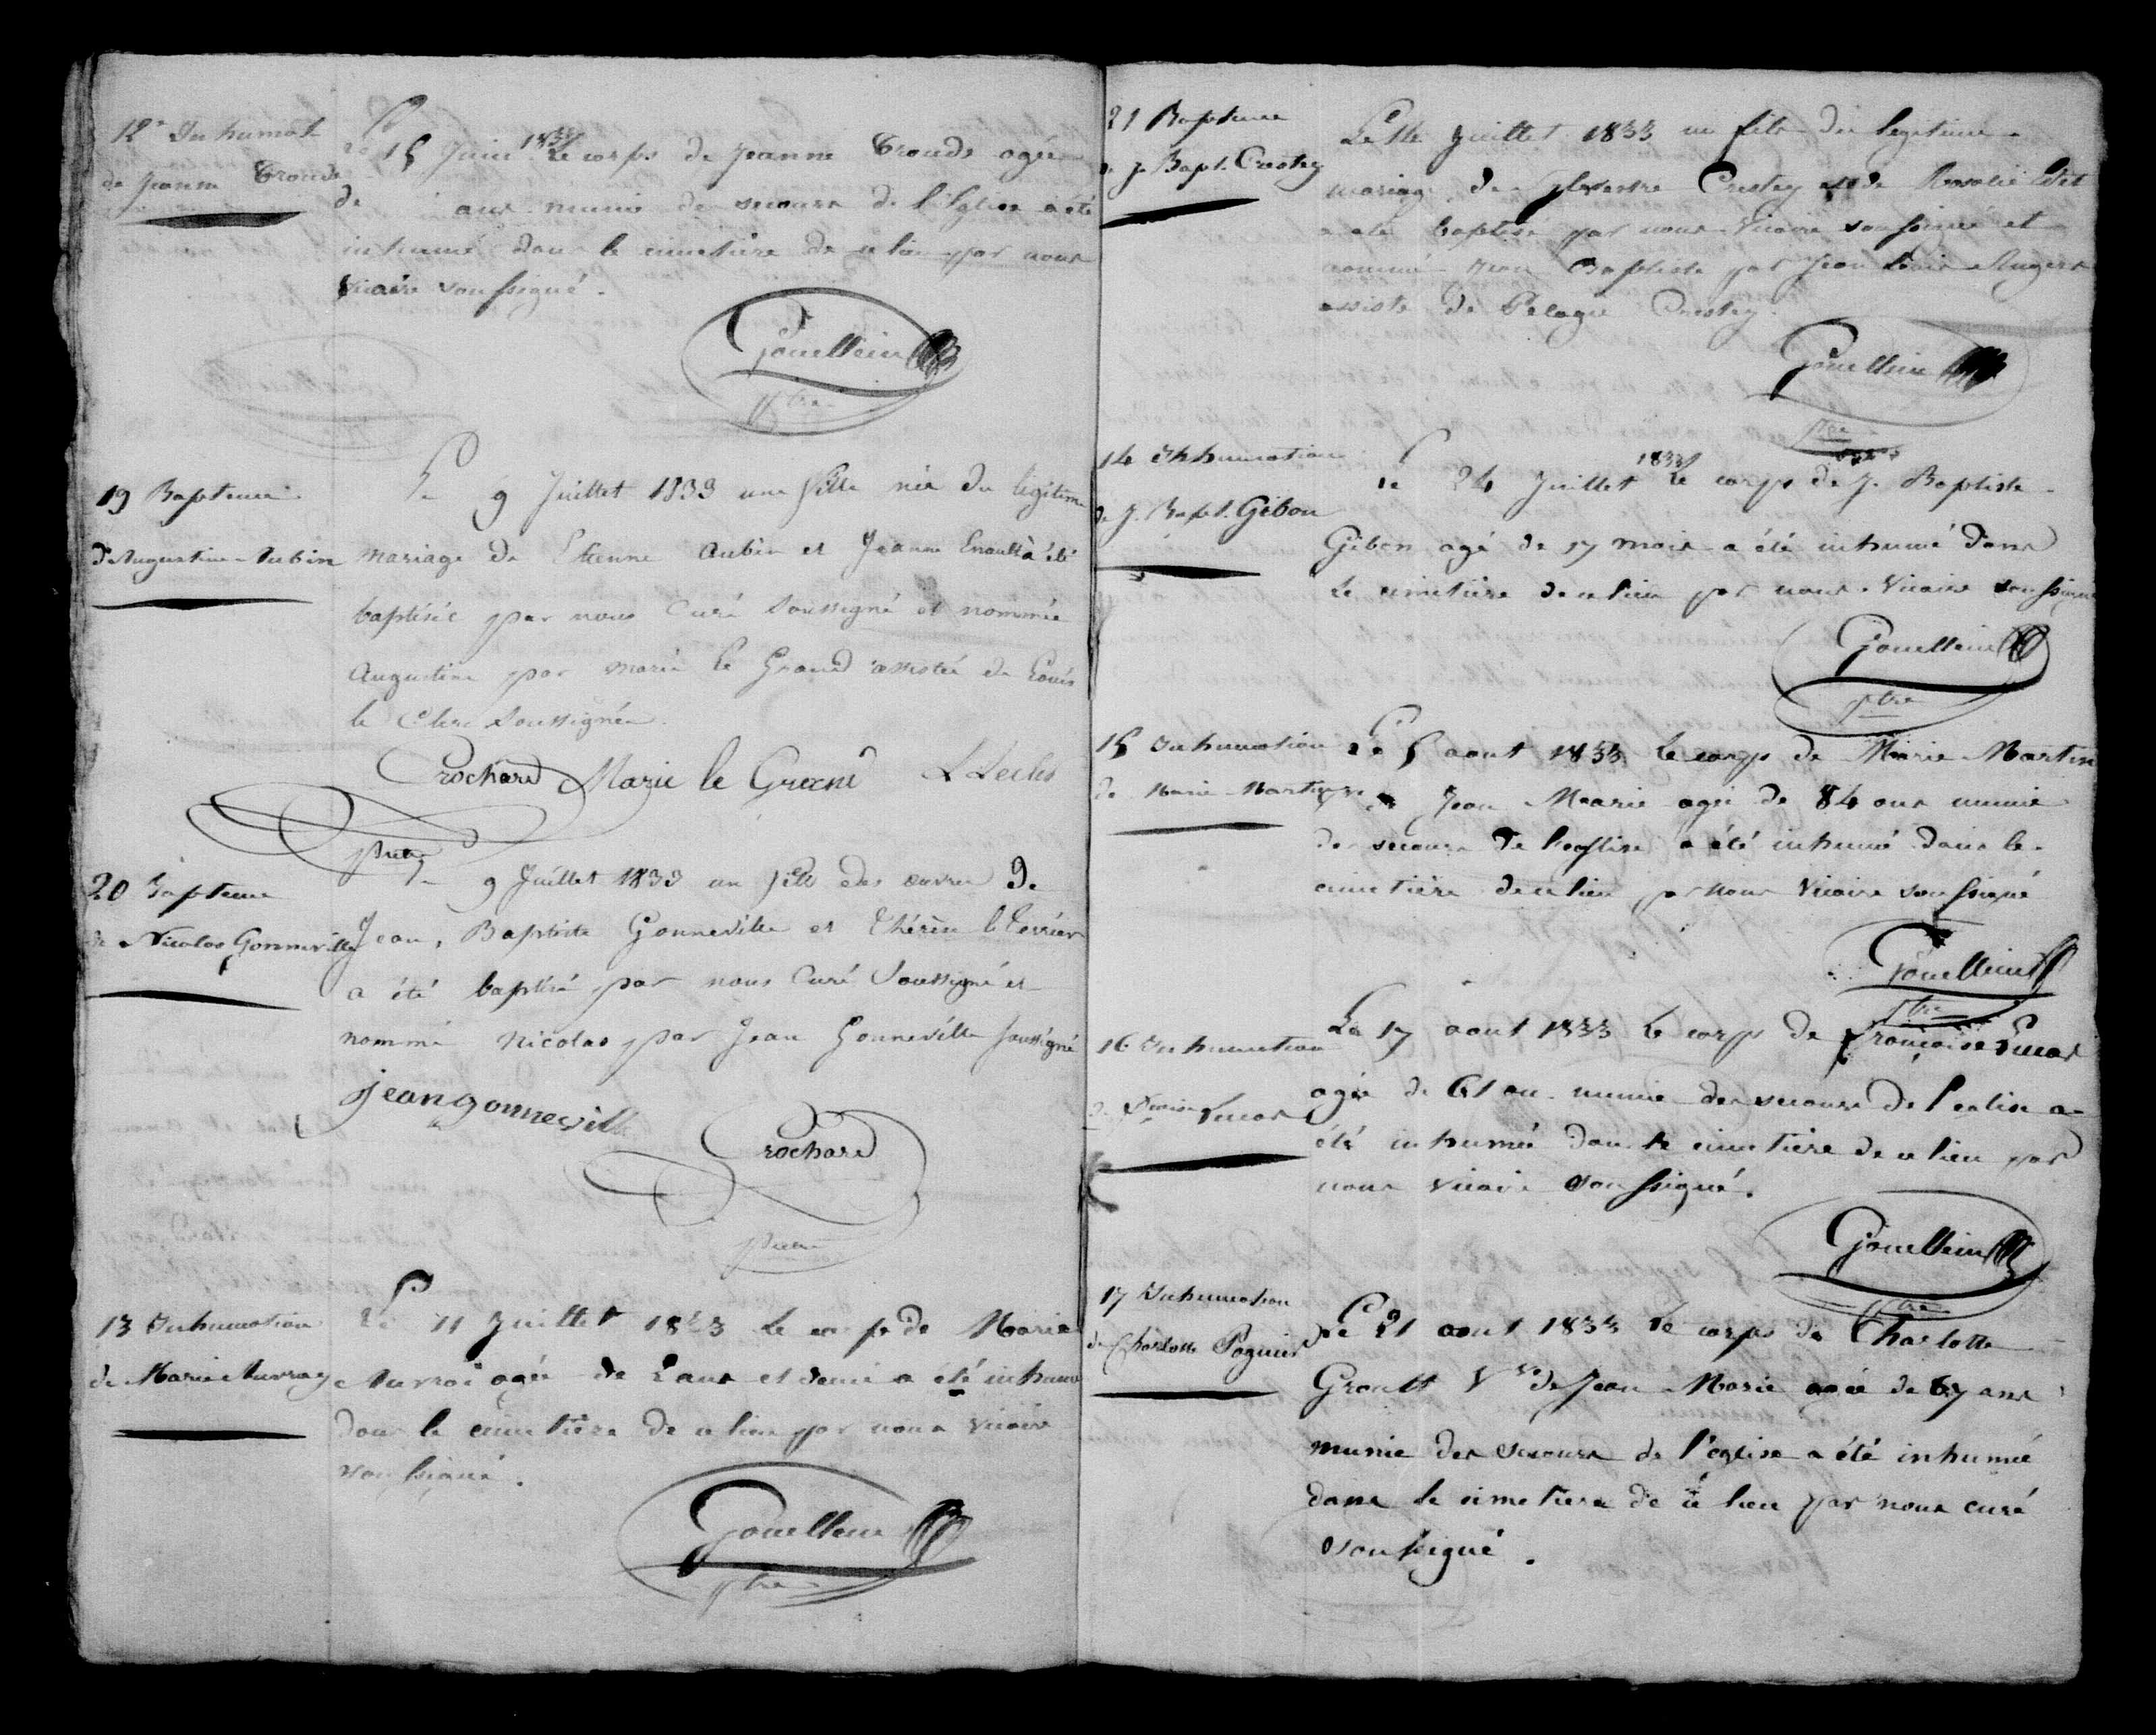 12e Inhumat
de Jeanne Troude
Le 15 Juin 1833 Le corps de Jeanne Troude agée
de ans munie des secours de l'Eglise a été
inhumé dans le cimetière de ce lieu par nous
vicaire soussigné.
Gouelleu
ptre
19 Bapteme
d'Augustine Aubin
Le 9 Juillet 1833 une fille née du légitime
mariage de Etienne Aubin et Jeanne Enault a été
baptisée par nous Curé Soussigné et nommée
Augustine par marie le Grand assistée de Louis
le Clerc Soussignés.
Crochard Marie le Grand L Lecler
ptre
20 Bapteme
de Nicolas Gonneville
Le 9 Juillet 1833 un fils des œuvres de
Jean, Baptiste Gonneville et Thérèse
a été baptisé par nous Curé Soussigné et
nommé Nicolas par Jean Gonneville soussigné
jean gonneville
Crochard
ptre
13 Inhumation
de Marie Auvray
Le 11 Juillet 1833 le corps de Marie
Auvrai agée de 2 ans et demi a été inhumé
dans le cimetière de ce lieu par nous vicaire
soussigné.
Gouelleu
ptre
21 Bapteme
de J. Bapt. Crestey
Le Juillet 1833 un fils du legitime
mariage de Sylvestre Crestey et de Rosalie
a été baptisé par nous vicaire soussigné et
nommé Jean Baptiste par Jean Louis Augers
assisté de Pelagie Crestey.
Gouelleu
ptre
14 Inhumation
de J. Bapt. Gibon
Le 24 Juillet 1833 Le corps de J. Baptiste
Gibon agé de 17 mois a été inhumé dans
le cimetière de ce lieu par nous vicaire soussigné
Gouelleu
ptre
15 Inhumation
de Marie Martin
Le 5 aout 1833 le corps de Marie Martin
Jean Marie agée de 84 ans munie
des secours de l'eglise a été inhumé dans le
cimetière de ce lieu par nous vicaire soussigné
Gouelleu
ptre
16 Inhumation
de Lucas
Le 17 aout 1833 le corps de françoise Lucas
agée de 61 an munie des secours de l'eglise a
été inhumée dans le cimetière de ce lieu par
nous vicaire soussigné.
Gouelleu
ptre
17 Inhumation
de Charlotte
Le 21 aout 1833 le corps de Charlotte
Groult Vve de Jean Marie agée de 67 ans
munie des secours de l'église a été inhumée
dans le cimetiere de ce lieu par nous curé
soussigné.